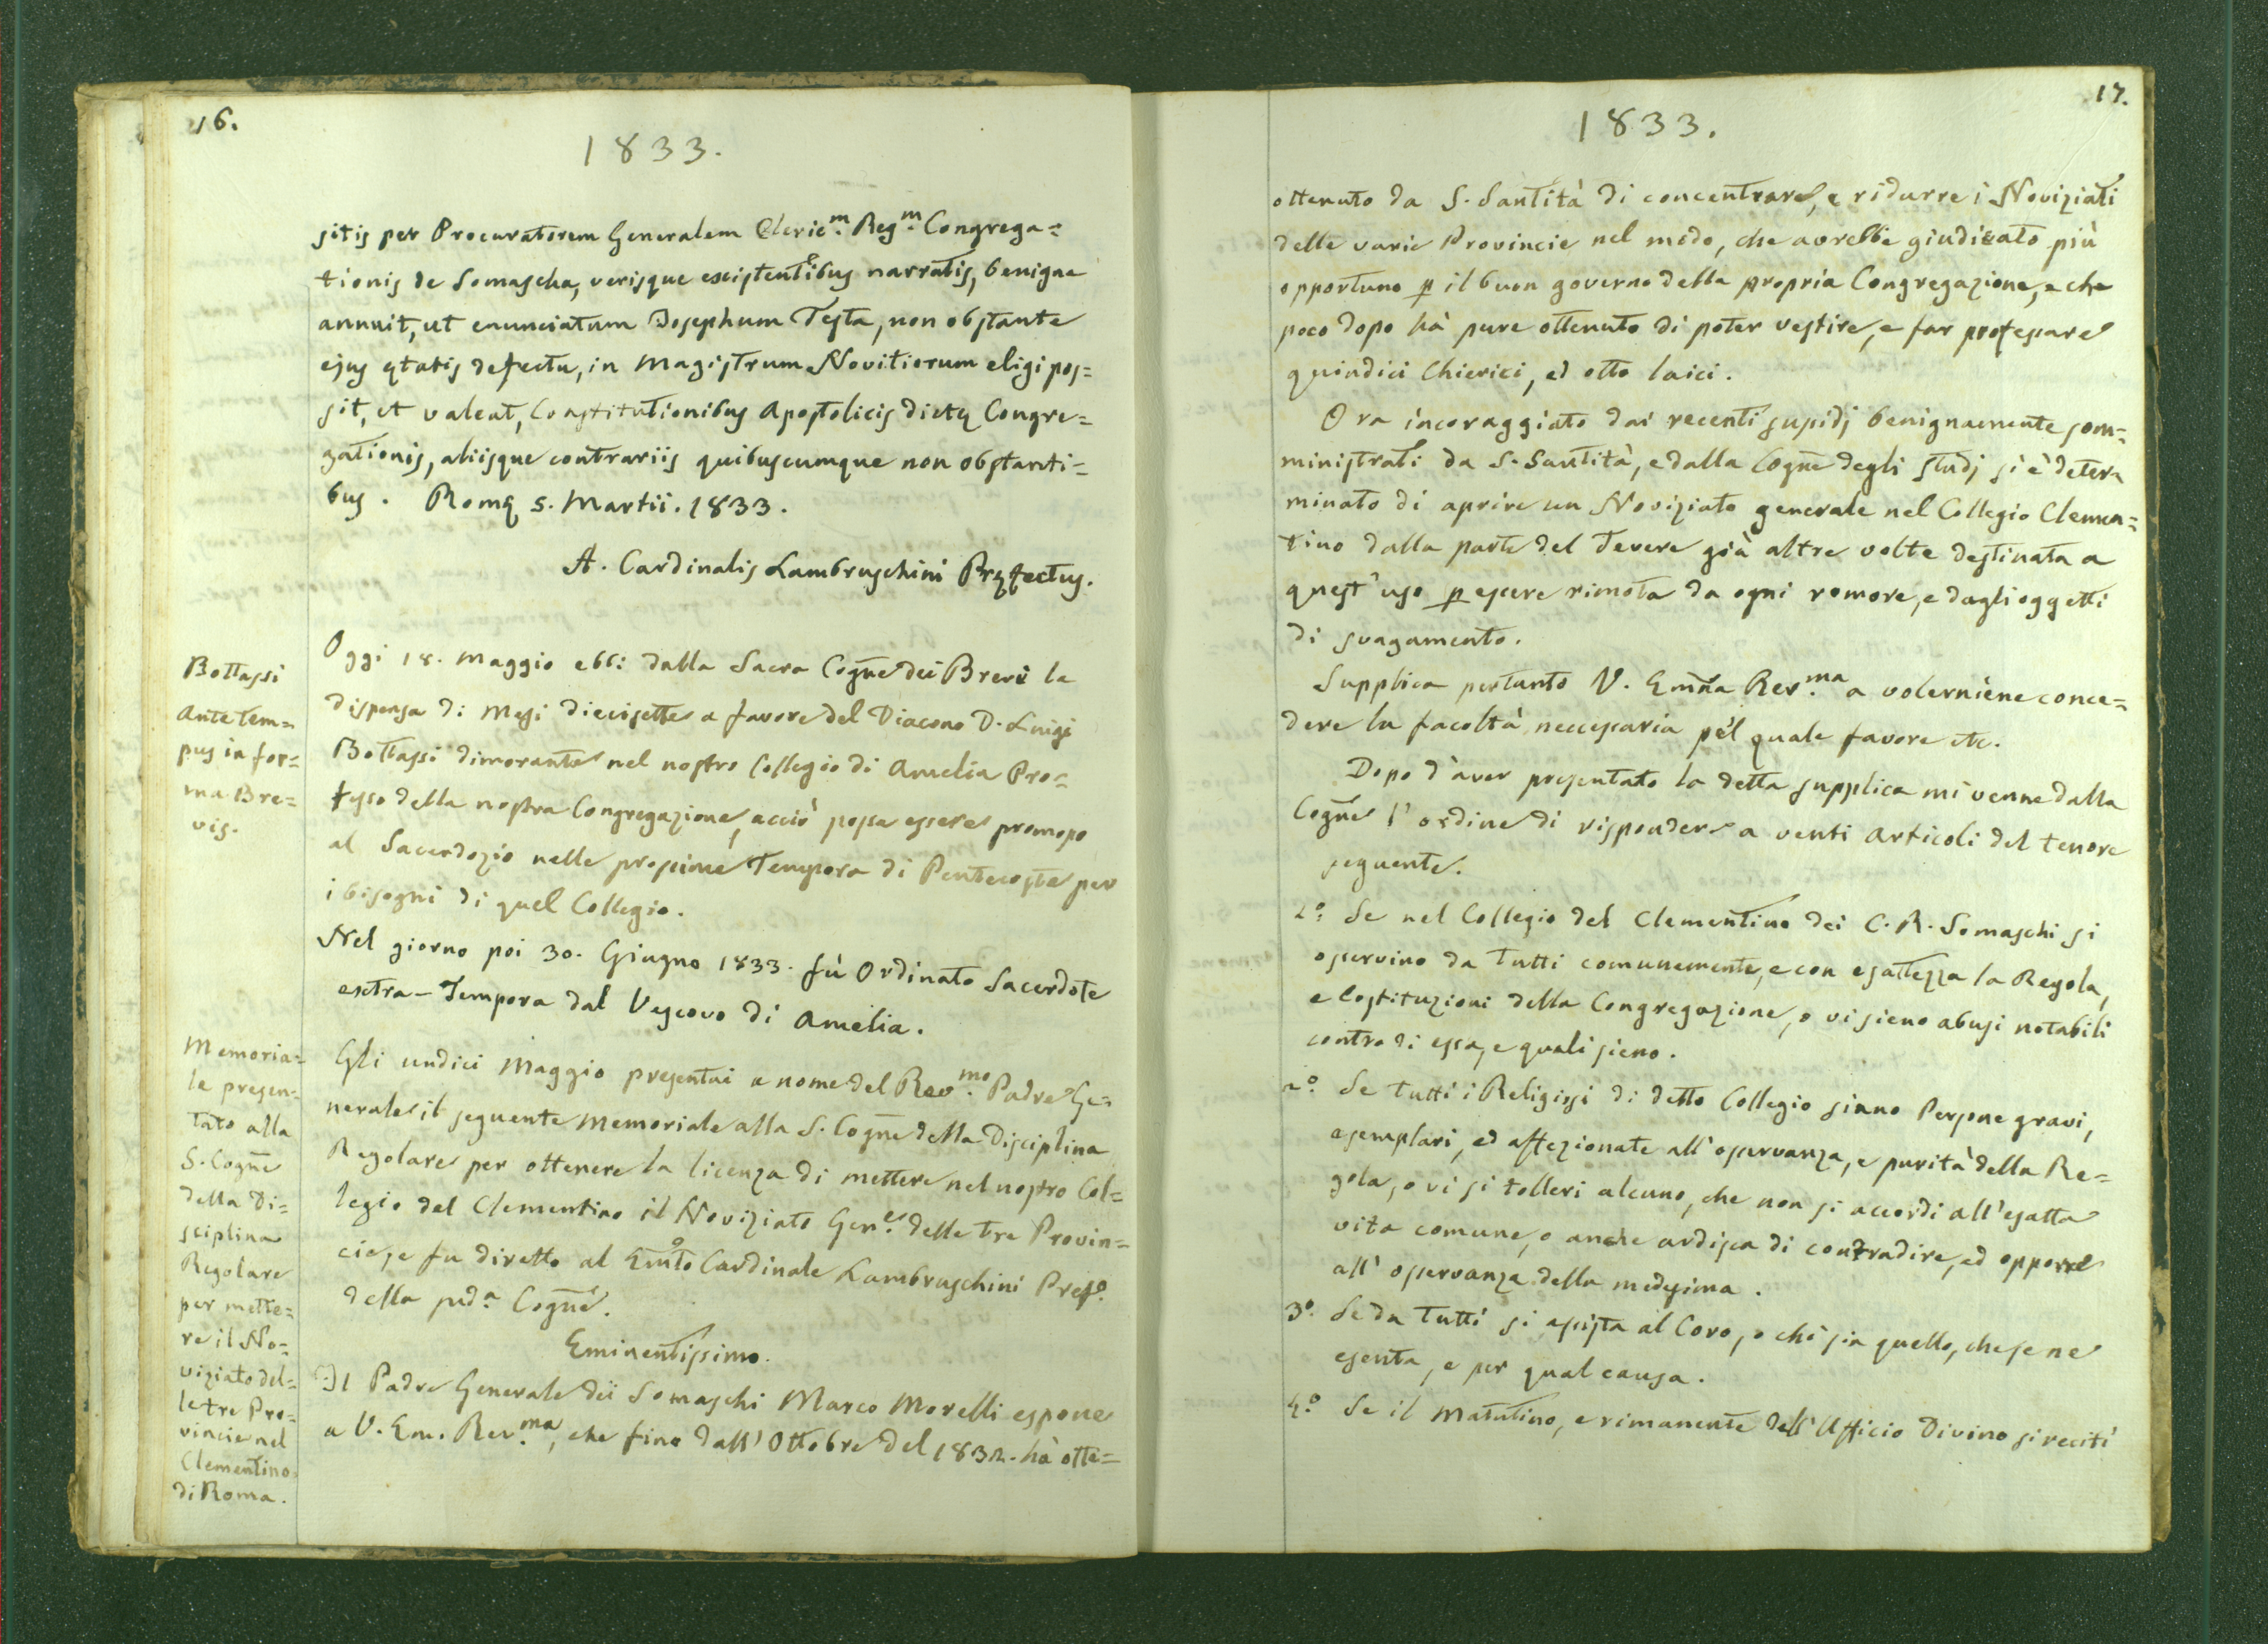 16.
1833.
sitis per Procuratorem Generalem Cleric.m Reg.m Congrega=
tionis de Somascha, verisque existentibus narratis, benigne
annuit, ut enunciatum Josephum Testa, non obstante
ejus ętatis defectu, in Magistrum Novitiorum eligi pos=
sit, et valeat, Constitutionibus Apostolicis dictę Congre=
gationis, aliisque contrariis quibuscumque non obstanti=
bus. Romę 5. Martii. 1833.
A. Cardinalis Lambruschini Pręfectus.
Bottassi
ante tem=
pus in for=
ma Bre=
vis.
Oggi 18. Maggio ebbi dalla Sacra Cogñe dei Brevi la
dispensa di Mesi diecisette a favore del Diacono D. Luigi
Bottassi dimorante nel nostro Collegio di Amelia Pro=
fesso della nostra Congregazione, acciò possa essere promosso
al Sacerdozio nelle prossime Tempora di Pentecoste per
i bisogni di quel Collegio.
Nel giorno poi 30. Giugno 1833. fù Ordinato Sacerdote
extra-Tempora dal Vescovo di Amelia.
Memoria=
le presen=
tato alla
S. Cogñe
della Di=
sciplina
Regolare
per mette=
re il No=
viziato del=
le tre Pro=
vincie nel
Clementino
di Roma.
Gli undici Maggio presentai a nome del Rev.mo Padre Ge=
nerale il seguente Memoriale alla S. Cogñe della Disciplina
Regolare per ottenere la licenza di mettere nel nostro Col=
legio del Clementino il Noviziato Gen.e delle tre Provin=
cie, e fu diretto al Em̃o Cardinale Lambruschini Pref.o
della sud.a Cogñe.
Eminentissimo.
Il Padre Generale dei Somaschi Marco Morelli espone
a V. Em. Rev.ma, che fino dall'Ottobre del 1832. hà otte=
17.
1833.
ottenuto da S. Santità di concentrare, e ridurre i Noviziati
delle varie Provincie nel modo, che avrebbe giudicato più
opportuno p il buon governo della propria Congregazione, e che
poco dopo hà pure ottenuto di poter vestire, e far professare
quindici Chierici, ed otto laici.
Ora incoraggiato dai recenti susidj benignamente som=
ministrati da S. Santità, e dalla Cogñe degli studj si è deter
minato di aprire un Noviziato generale nel Collegio Clemen=
tino dalla parte del Tevere già altre volte destinata a
quest'uso p essere rimota da ogni romore, e dagli oggetti
di svagamento.
Supplica pertanto V. Em̃za Rev.ma a volerniene conce=
dere la facoltà neccessaria pel quale favore etc.
Dopo d'aver presentato la detta supplica mi venne dalla
Cogñe l'ordine di rispondere a venti articoli del tenore
seguente.
1.o Se nel Collegio del Clementino dei C. R. Somaschi si
osservino da tutti comunemente, e con esattezza la Regola,
e Costituzioni della Congregazione, o vi sieno abusi notabili
contro di essa, e quali sieno.
2.o Se tutti i Religiosi di detto Collegio siano Persone gravi,
esemplari, ed affezionate all'osservanza, e purità della Re=
gola, o vi si tolleri alcuno, che non si accordi all'esatta
vita comune, o anche ardisca di contradire, ed opporre
all'osservanza della medesima.
3.o Se da tutti si assista al Coro, o chi sia quello, che se ne
esenta, e per qual causa.
4.o Se il Matutino, e rimanente dell'Ufficio Divino si reciti